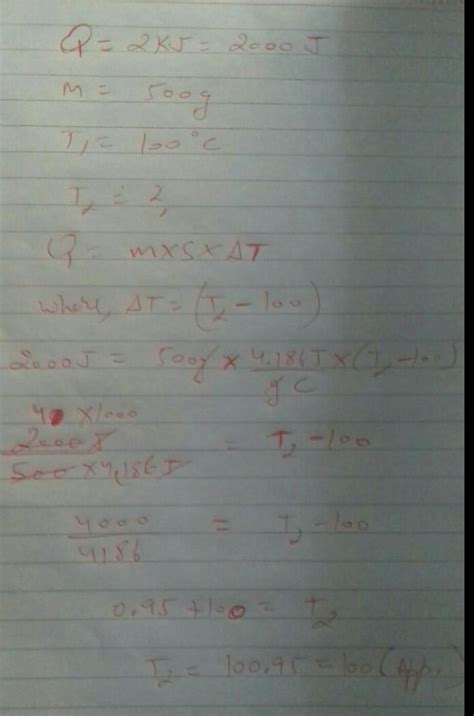 Q = 2KJ = 2000J
M = 500g
T₁ = 100°C
T₂ = ?
Q = m×S×ΔT
where, ΔT = (T₂ - 100)
2000J = 500g × 4.186J/gC × (T₂-100)
4 × 1000
2000J / 500 × 4.186J = T₂ - 100
4000 / 4186 = T₂ - 100
0.95 + 100 = T₂
T₂ = 100.95 = 100 (App